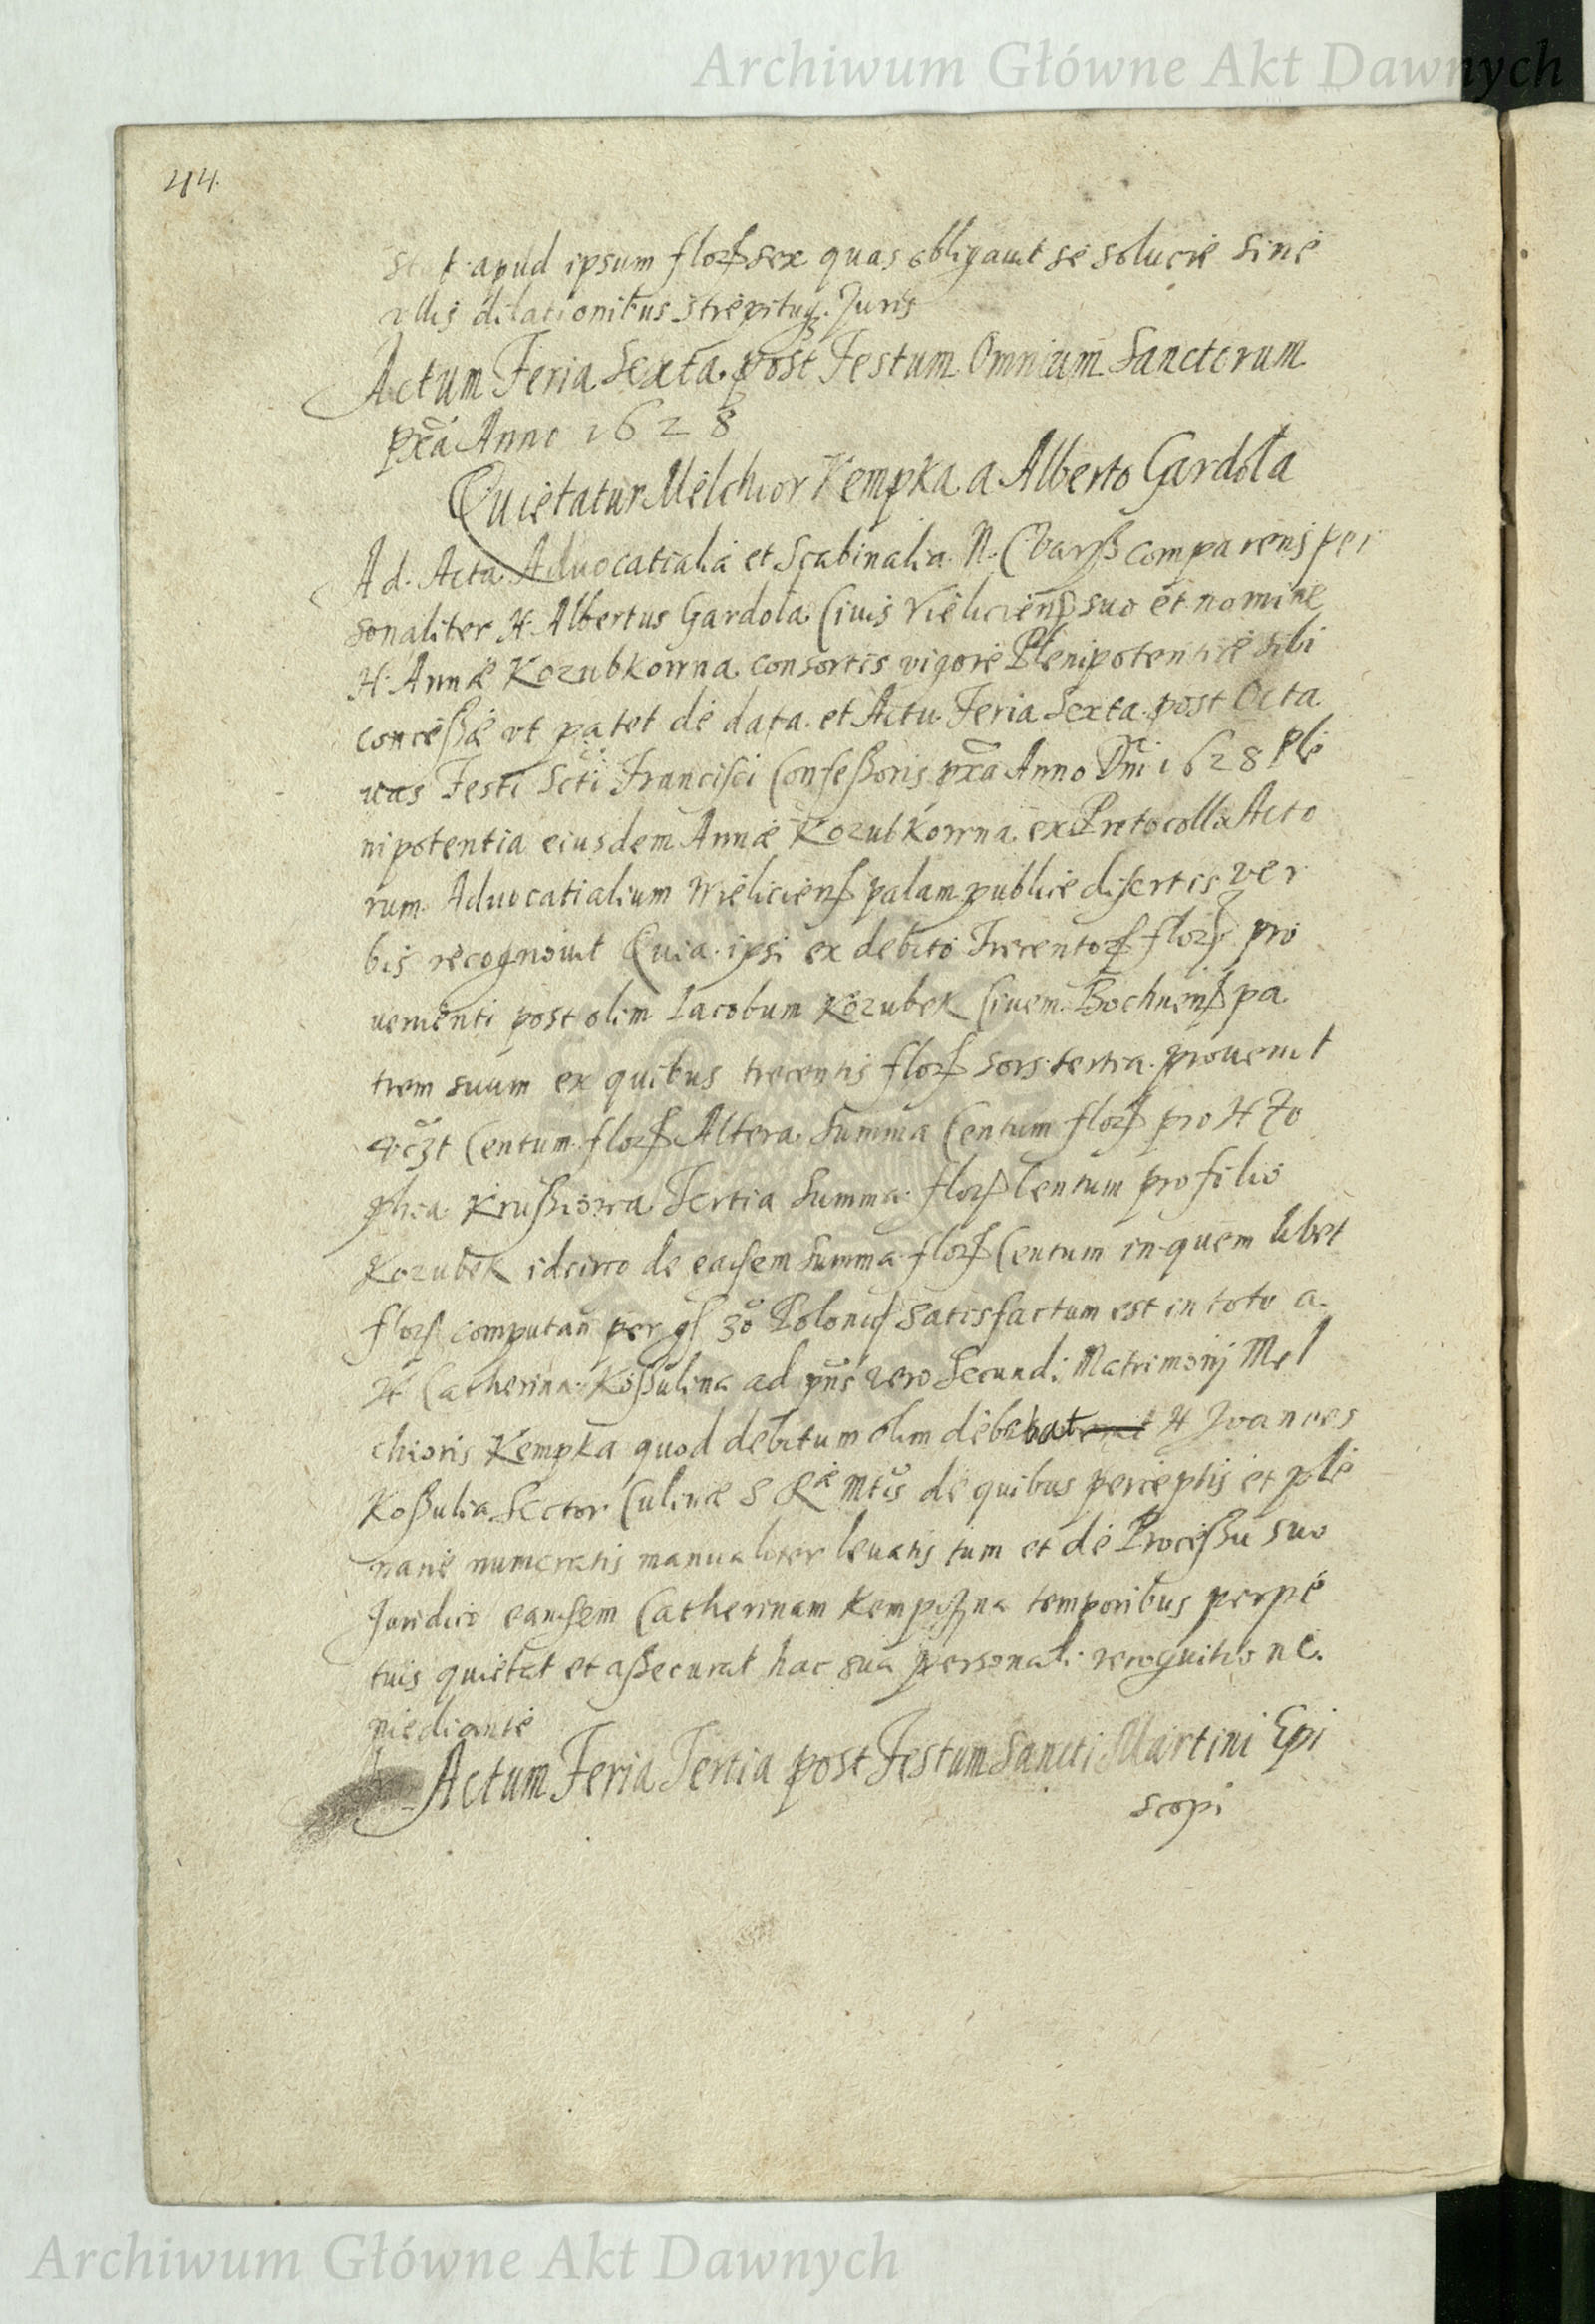 Archiwum Główne Akt Dawnych
414.
apud ipsum florſ sex quas obligauit se soluere sine
vllis dilationibus strepituq; Juris
Actum Feria Sexta post Festum Omnium Sanctorum
pxa Anno 1628
Quietatur Melchior Kempka a Alberto Gardola
Ad Acta Aduocatialia et Scabinalia N. Cvarß comparens per
sonaliter H. Albertus Gardola Ciuis Vielicienß suo et nomine
H. Annæ Kozubkowna consortis vigore Plenipotentiæ sibi
conceßæ vt patet de data et Actu Feria Sexta post Octa
uas Festi Scti Francisci Confeßoris pxa Anno Dni 1628 Ple
nipotentia eiusdem Annæ Kozubkowna ex Protocolla Acto
rum Aduocatialium Wielicienß palam publice disertis ver
bis recognouit Quia ipsi ex debito Trecentorſ florſ pro
uenienti post olim Iacobum Kozubek Ciuem Bochnenß pa
trem suum ex quibus trecentis florſ sors tertia prouenit
Centum florſ Altera Summa Centum florſ pro H Zo
phia Krußiowa Tertia Summa florſ Centum pro filio
Kozubek idcirco de eadem Summa florſ Centum in quem libet
florſ computan per gſ 30 Polonic satisfactum est in toto a
H Catherina Koßulina ad pns vero Secundi Matrimonij Mel
chioris Kempka quod debitum olim debebat H Joannes
Koßulia Sector Culinæ S Ræ Mtis de quibus perceptis et ple
narie numeratis manualiter leuatis tum et de Proceßu suo
Juridico eandem Catherinam Kempczyna temporibus perpe
tuis quietat et aßecurat hac sua personali recognitione
mediante
Actum Feria Tertia post Festum Sancti Martini Epi
scopi
Archiwum Główne Akt Dawnych